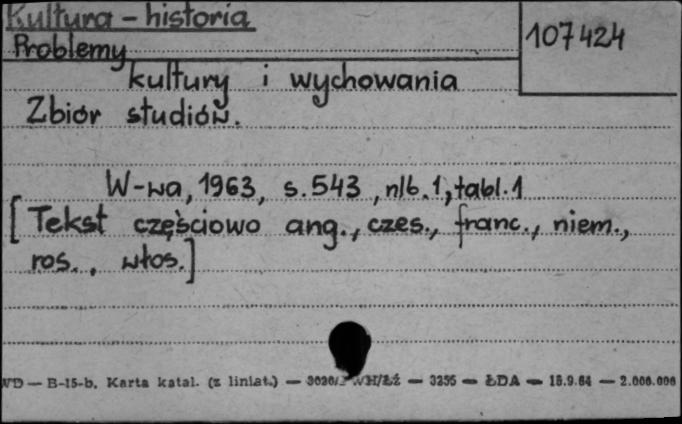 Kultura - historia
107424
Problemy
kultury i wychowania
Zbiór studiów.
W-wa, 1963, s. 543, nlb. 1, tabl. 1
[Tekst częściowo ang., czes., franc., niem.,
ros., włos.]
WD — B-15-b. Karta katal. (z liniat.) — — 3255 — ŁDA — 15.9.64 — 2.000.000